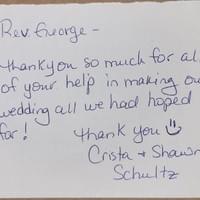 Rev. George -
Thank you so much for al
of your help in making ou
wedding all we had hoped
for!
Thank you
Crista + Shawn
Schultz